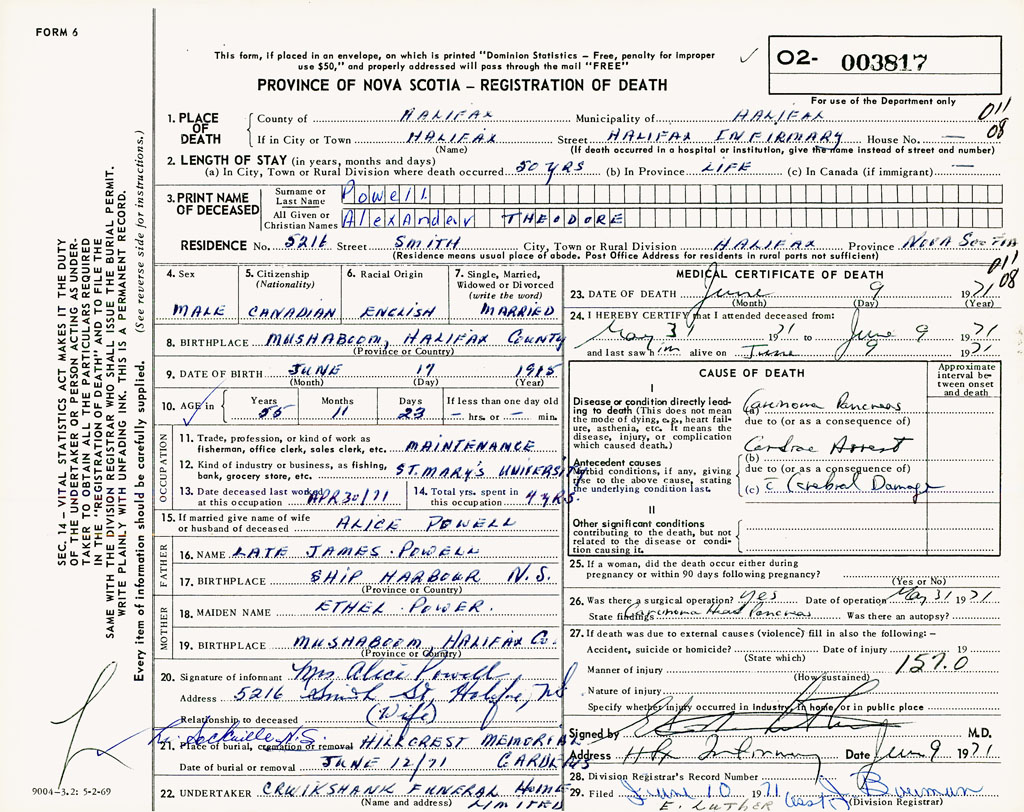 FORM 6
This form, if placed in an envelope, on which is printed "Dominion Statistics – Free, penalty for improper
use $50," and properly addressed will pass through the mail "FREE"
PROVINCE OF NOVA SCOTIA – REGISTRATION OF DEATH
O2- 003817
For use of the Department only
011
08
1. PLACE OF DEATH
County of HALIFAX Municipality of HALIFAX
If in City or Town HALIFAX Street HALIFAX INFIRMARY House No. —
(Name) (If death occurred in a hospital or institution, give the name instead of street and number)
2. LENGTH OF STAY (in years, months and days)
(a) In City, Town or Rural Division where death occurred 50 YRS (b) In Province LIFE (c) In Canada (if immigrant) —
3. PRINT NAME OF DECEASED
Surname or Last Name Powell
All Given or Christian Names AlexAnder THEODORE
RESIDENCE No. 5216 Street SMITH City, Town or Rural Division HALIFAX Province NOVA ScoTIA
(Residence means usual place of abode. Post Office Address for residents in rural parts not sufficient)
011
08
4. Sex
MALE
5. Citizenship (Nationality)
CANADIAN
6. Racial Origin
ENGLISH
7. Single, Married, Widowed or Divorced (write the word)
MARRIED
8. BIRTHPLACE MUSHABOOM, HALIFAX COUNTY
(Province or Country)
9. DATE OF BIRTH JUNE 17 1915
(Month) (Day) (Year)
10. AGE in Years 55 Months 11 Days 23 If less than one day old — hrs. or — min.
OCCUPATION
11. Trade, profession, or kind of work as fisherman, office clerk, sales clerk, etc. MAINTENANCE
12. Kind of industry or business, as fishing, bank, grocery store, etc. ST. MARY'S UNIVERSITY
13. Date deceased last worked at this occupation APR 30/71
14. Total yrs. spent in this occupation 4 YRS.
15. If married give name of wife or husband of deceased ALICE POWELL
FATHER
16. NAME LATE JAMES POWELL
17. BIRTHPLACE SHIP HARBOUR N.S.
(Province or Country)
MOTHER
18. MAIDEN NAME ETHEL POWER.
19. BIRTHPLACE MUSHABOOM, HALIFAX Co.
(Province or Country)
20. Signature of informant Mrs Alice Powell
Address 5216 Smith St, Halifax, NS
Relationship to deceased (Wife)
Sackville N.S.
21. Place of burial, cremation or removal HILLCREST MEMORIAL GARDENS
Date of burial or removal JUNE 12/71
22. UNDERTAKER CRUIKSHANK FUNERAL HOME LIMITED
(Name and address)
MEDICAL CERTIFICATE OF DEATH
23. DATE OF DEATH June 9 1971
(Month) (Day) (Year)
24. I HEREBY CERTIFY that I attended deceased from:
May 31 1971 to June 9 1971
and last saw him alive on June 9 1971
CAUSE OF DEATH
Approximate interval between onset and death
I
Disease or condition directly leading to death (This does not mean the mode of dying, e.g., heart failure, asthenia, etc. It means the disease, injury, or complication which caused death.)
(a) Carcinoma Pancreas
due to (or as a consequence of)
Cardiac Arrest
Antecedent causes
Morbid conditions, if any, giving rise to the above cause, stating the underlying condition last.
(b)
due to (or as a consequence of)
(c) c̄ Cerebral Damage
II
Other significant conditions contributing to the death, but not related to the disease or condition causing it.
25. If a woman, did the death occur either during pregnancy or within 90 days following pregnancy?
(Yes or No)
26. Was there a surgical operation? yes Date of operation May 31 1971
State findings Carcinoma Head Pancreas Was there an autopsy?
27. If death was due to external causes (violence) fill in also the following: –
Accident, suicide or homicide? Date of injury 19
(State which)
Manner of injury 157.0
(How sustained)
Nature of injury
Specify whether injury occurred in industry, in home, or in public place
Signed by M.D.
Address Hfx Infirmary Date June 9 1971
28. Division Registrar's Record Number
29. Filed June 10 1971 (asst) J Bowman
E. LUTHER (Division Registrar)
SEC. 14 – VITAL STATISTICS ACT MAKES IT THE DUTY
OF THE UNDERTAKER OR PERSON ACTING AS UNDER-
TAKER TO OBTAIN ALL THE PARTICULARS REQUIRED
IN THE "REGISTRATION OF DEATH" AND TO FILE THE
SAME WITH THE DIVISION REGISTRAR WHO SHALL ISSUE THE BURIAL PERMIT.
WRITE PLAINLY WITH UNFADING INK. THIS IS A PERMANENT RECORD.
Every item of information should be carefully supplied. (See reverse side for instructions.)
9004-3.2: 5-2-69